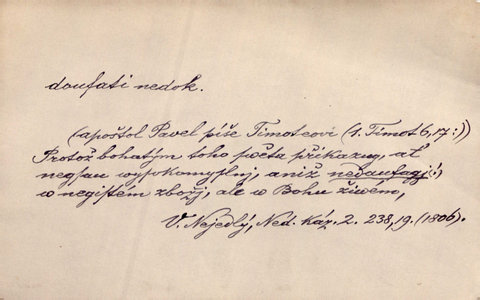 doufati nedok.
(apoštol Pavel píše Timoteovi (1. Timot 6, 17:))
Protož bohatým toho swěta přikazug, ať
negsau wysokomyslnj, aniž nedaufagj,
w negistém zbožj, ale w Bohu žiwém,
V. Nejedlý, Ned. Káz. 2. 238, 19. (1806).